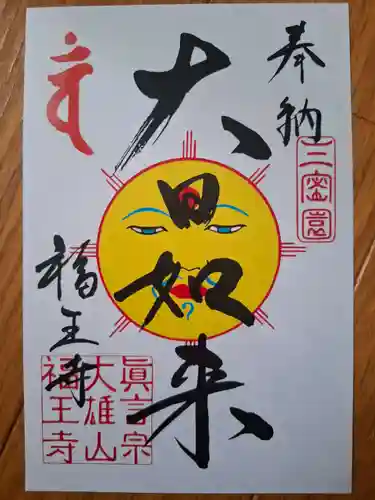 奉納
三密窟
大日如来
福王寺
眞言宗
大雄山
福王寺